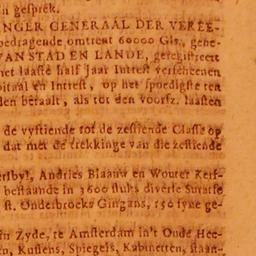 n gesprek.
NGER GENERAAL DER VEREE-
bedragende omtrent 60000 Gls., gene-
VAN STAD EN LANDE, geregistreert
het laaste half Jaar Intrest verscheenen
pitaal en Intrest, op het spoedigste ten
den betaalt, als tot den voorsz. laasten
de vyftiende tot de zestiende Classe op
dat met de trekkinge van die zestiende
Andries Blaauw en Wouter Keif-
bestaande in 3600 stuks diverse Suratse
st. Onderbroeks Gingans, 150 fyne ge-
en Zyde, te Amsterdam in't Oude Hee-
en, Kussens, Spiegels, Kabinetten, staan-